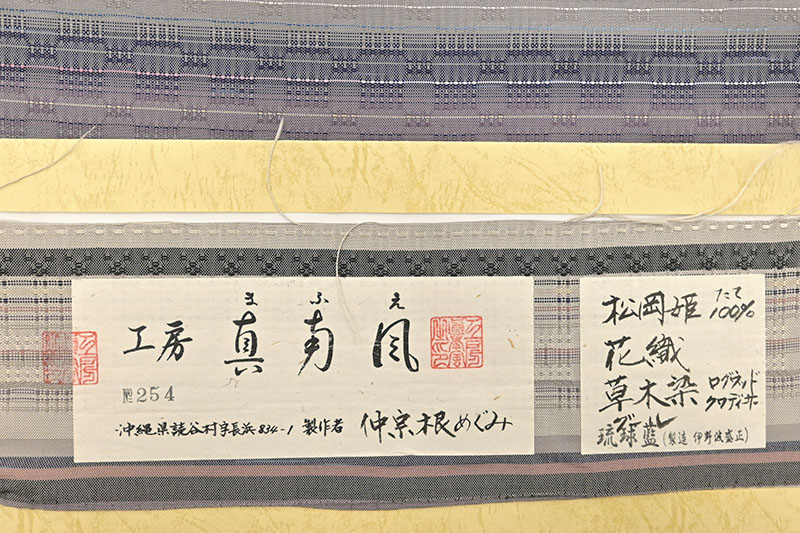 まふえ
工房 真南風
№254
沖縄県読谷村字長浜834-1 製作者 仲宗根めぐみ
松岡姫 たて100%
花織
草木染 ログウッド
クロディサ
琉球藍(製造 伊野波盛正)